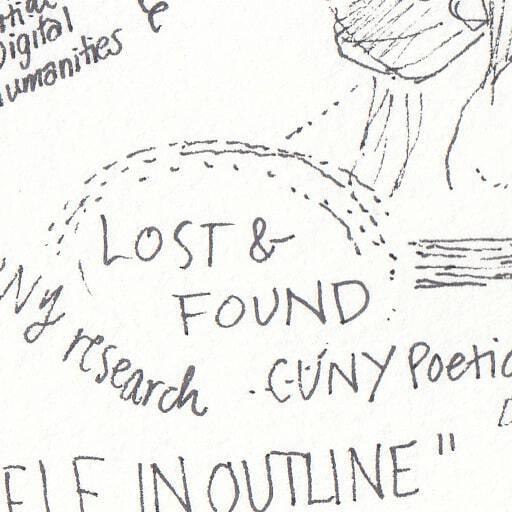 Digital
Humanities
&
LOST &
FOUND
research
CUNY Poetic
IN OUTLINE"